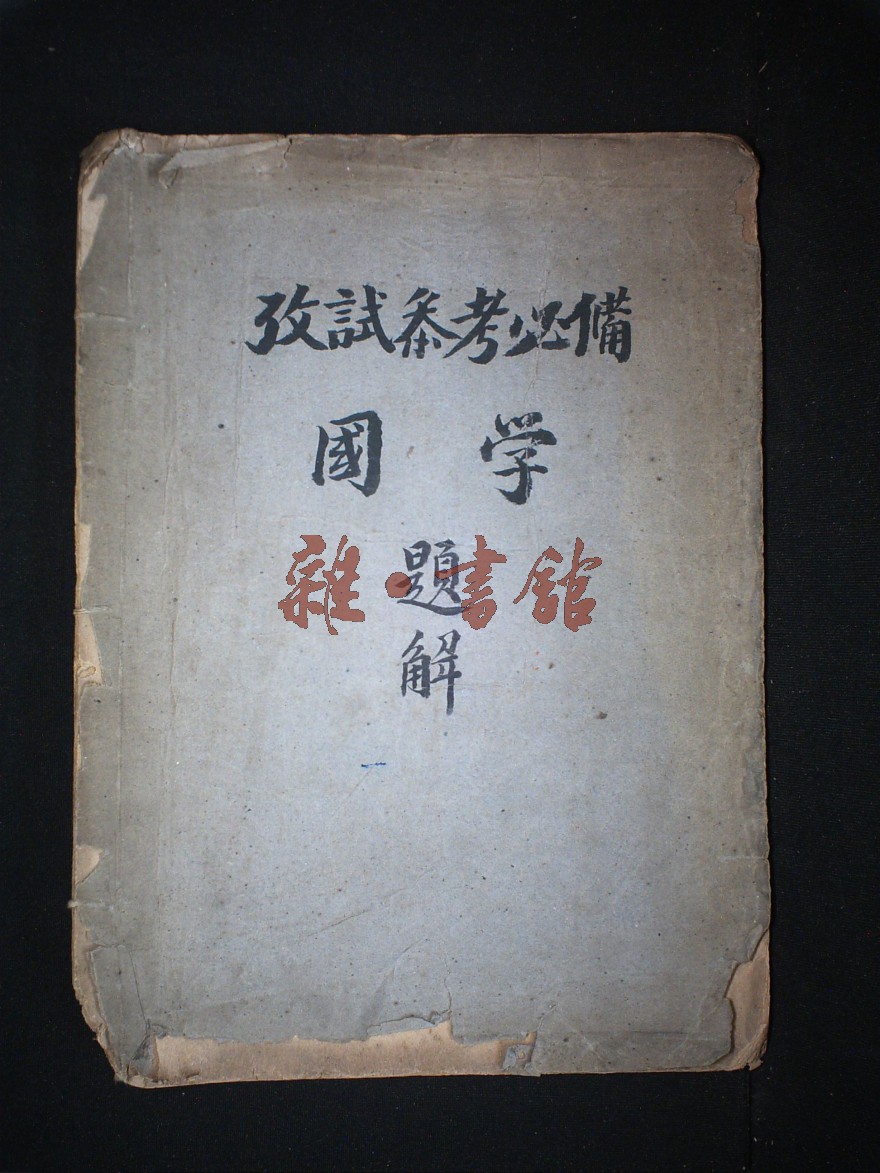 攷試叅考必備
國学
雜·書館
題
解